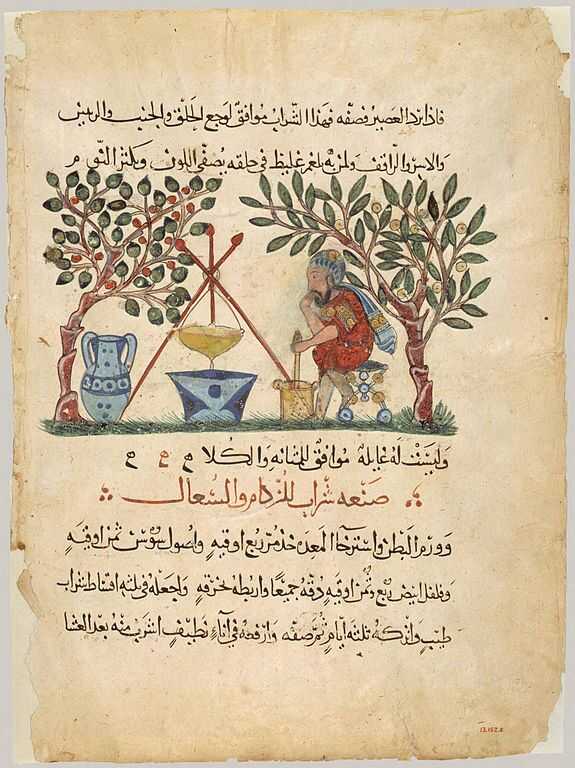 فاذا برد العصير فصفه فهذا الشراب موافق لوجع الحلق والجنب والريتين
ولمن به بلغم غليظ في حلقه يصفي اللون ويكثر النوم
وليست له غايله موافق للمثانه والكلا
صنعه شراب للزكام والسعال
وورم البطن واسترخا المعده خذ مر ربع اوقيه واصول سوس ثمن اوقيه
وفلفل ابيض ربع وثمن اوقيه دقه جميعا واربطه بخرقه واجعله في ثلثه اقساط شراب
طيب واتركه ثلثه ايام ثم صفه وارفعه في اناء نظيف اشرب منه بعد العشا
13.152.6